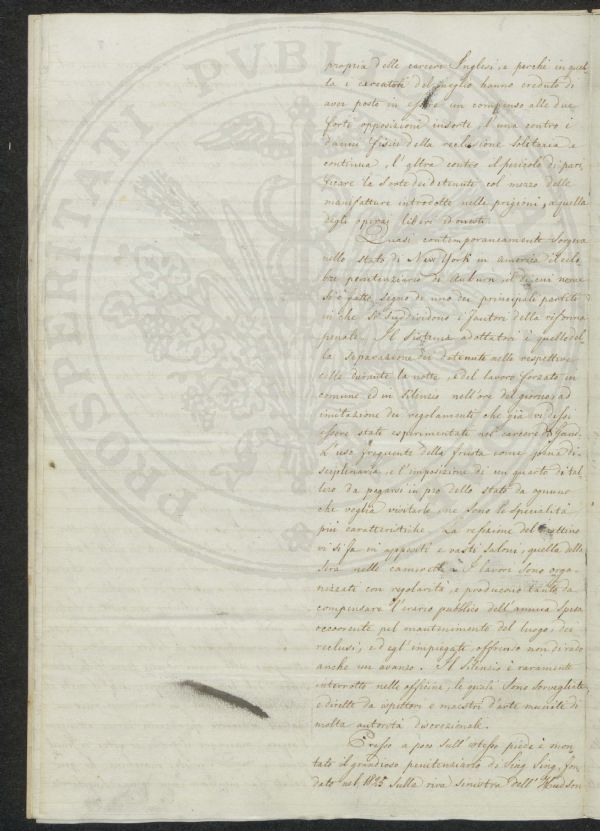 PROSPERITATI PVBLI
propria delle carceri Inglesi, e perchè in quel-
la i cercatori del meglio hanno creduto di
aver posto in essere un compenso alle due
forti opposizioni insorte, l'una contro i
danni fisici della reclusione solitaria e
continua, l'altra contro il pericolo di pari-
ficare la sorte dei detenuti col mezzo delle
manifatture introdotte nelle prigioni, a quella
degli operai liberi ed onesti.
Quasi contemporaneamente sorgeva
nello stato di New York in america il cele-
bre penitenziario di Auburn, il di cui nome
si è fatto segno di uno dei principali partiti
in che si suddividono i fautori della riforma
penale. Il sistema adottatovi è quello del-
la separazione dei detenuti nelle respettive
celle durante la notte, e del lavoro forzato in
comune ed in silenzio nell'ore del giorno, ad
imitazione dei regolamenti che già vi dissi
essere stati esperimentati nel carcere di Gand.
L'uso frequente della frusta come pena di-
sciplinaria, e l'imposizione di un quarto di tal-
lero da pagarsi in pro dello stato da ognuno
che voglia visitarlo, ne sono le specialità
più caratteristiche. La refezione del mattino
vi si fa in appositi e vasti saloni, quella della
sera nelle camerette. I lavori sono orga-
nizzati con regolarità, e producono tanto da
compensare l'erario pubblico dell'annua spesa
occorrente pel mantenimento del luogo, dei
reclusi, ed egl'impiegati, offrendo non di rado
anche un avanzo. Il silenzio è raramente
interrotto nelle officine, le quali sono sorvegliate
e dirette da ispettori e maestri d'arte muniti di
molta autorità discrezionale.
Presso a poco sull'istesso piede è mon-
tato il grandioso penitenziario di Sing Sing, fon-
dato nel 1825 sulla riva sinistra dell'Hudson